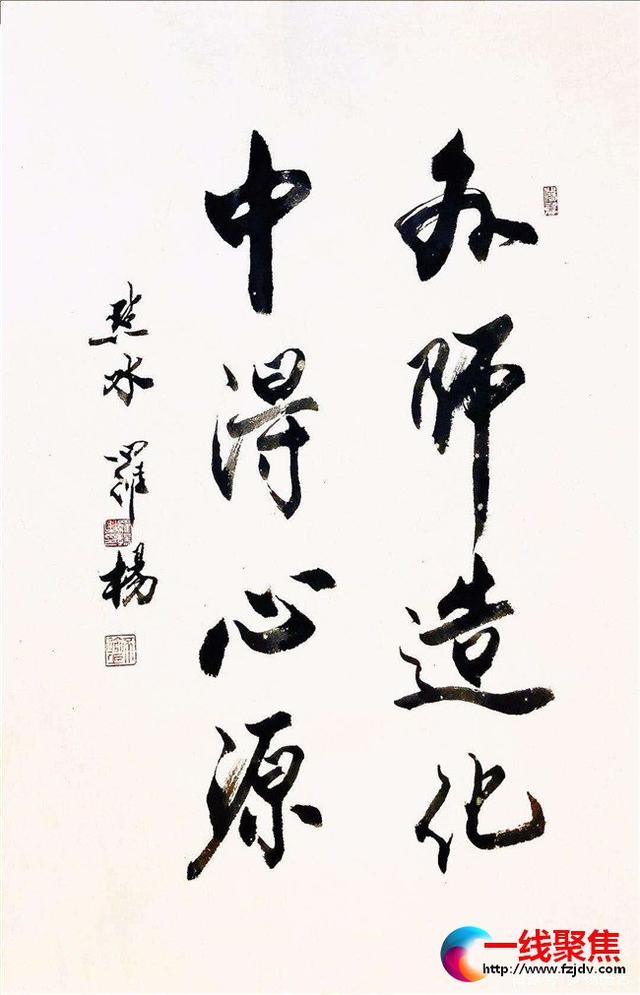 外师造化
中得心源
水 羅楊
一线聚焦
http://www.fzjdv.com